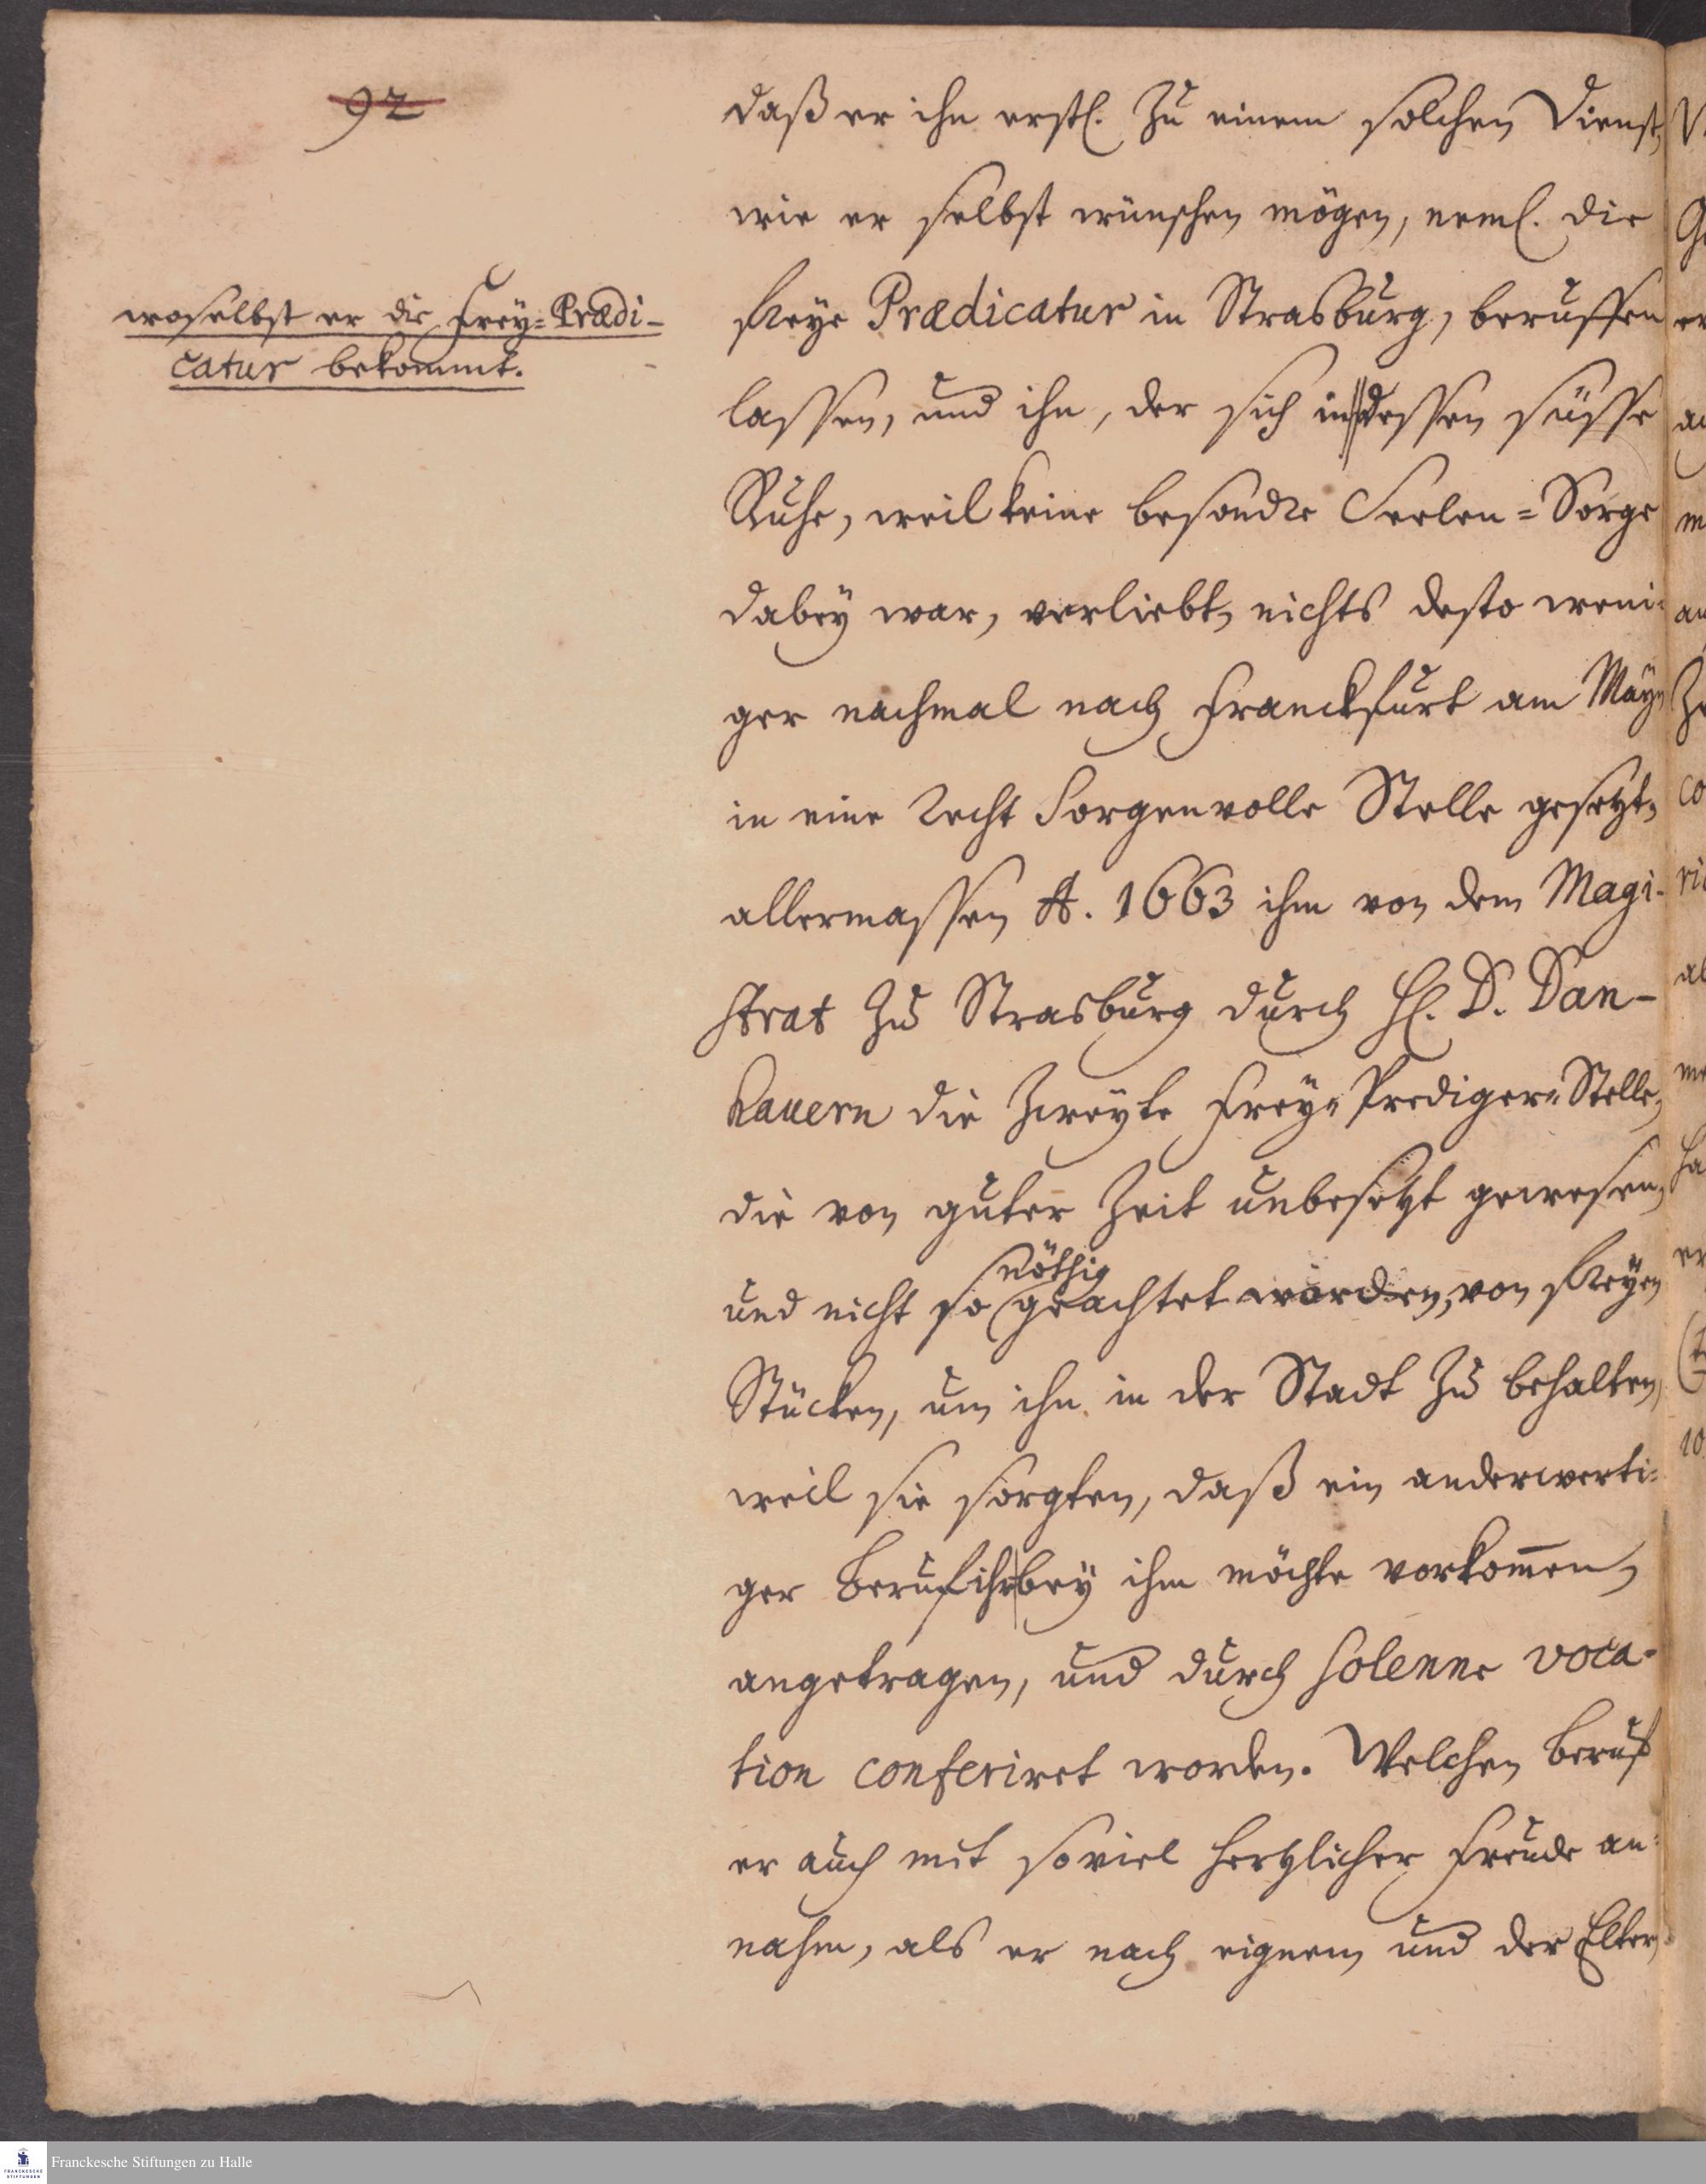 92
daß er ihn erstl. zu einem solchen Dienst,
wie er selbst wünschen mögen, neml. die
woselbst er die Frey=Prædi-
catur bekommt.
freye Prædicatur in Strasburg, beruffen
lassen, und ihn, der sich in dessen süsse
Ruhe, weil keine besondre Seelen=Sorge
dabey war, verliebt, nichts desto weni=
ger nachmal nach Franckfurt am Mayn
in eine recht Sorgenvolle Stelle gesetzt,
allermassen A. 1663 ihm von dem Magi-
strat zu Strasburg durch H. D. Dan-
hauern die zweyte Frey=Prediger=Stelle,
die von guter Zeit unbesetzt gewesen,
nöthig
und nicht so geachtet worden, von freyen
Stücken, um ihn in der Stadt zu behalten,
weil sie sorgten, daß ein anderwerti=
ger Beruf ihr bey ihm möchte vorkom̄en,
angetragen, und durch solenne voca-
tion conferiret worden. Welchen Beruf
er auch mit soviel hertzlicher Freude an=
nahm, als er nach eignem und der Elter
Franckesche Stiftungen zu Halle